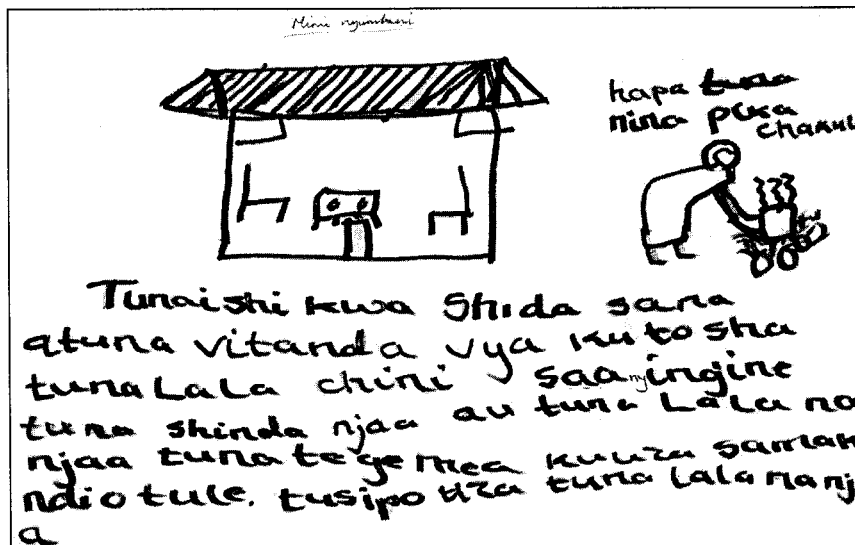 Mimi nyumbani
hapa tuna
nina pika
chakul
Tunaishi kwa Shida sana
atuna vitanda vya kutosha
tunaLaLa chini saa nyingine
tuna shinda njaa au tuna LaLa na
njaa tunategemea kuuza samak
ndio tule. tusipo uza tuna lala nanj
a